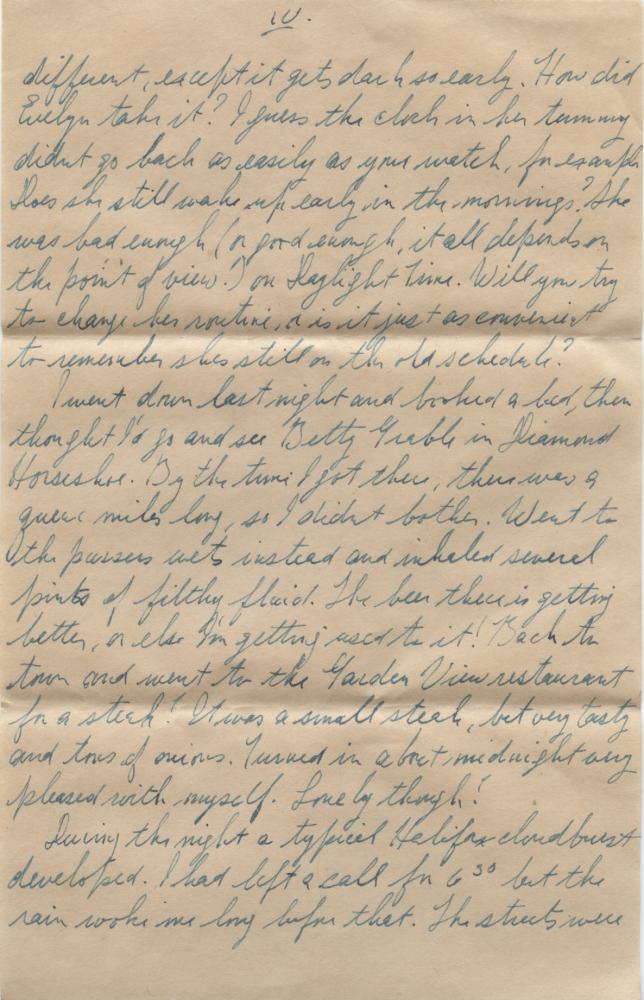 IV.
different, except it gets dark so early. How did
Evelyn take it? I guess the clock in her tummy
didnt go back as easily as your watch, for example
Does she still wake up early in the mornings? She
was bad enough (or good enough, it all depends on
the point of view!) on Daylight Time. Will you try
to change her routine, or is it just as convenient
to remember shes still on the old schedule?
I went down last night and booked a bed, then
thought I'd go and see Betty Grable in Diamond
Horseshoe. By the time I got there, there was a
queue miles long, so I didnt bother. Went to
the pursers wets instead and inhaled several
pints of filthy fluid. The beer there is getting
better, or else I'm getting used to it! Back to
town and went to the Garden View restaurant
for a steak! It was a small steak, but very tasty
and tons of onions. Turned in about midnight very
pleased with myself. Lonely though!
During the night a typical Halifax cloudburst
developed. I had left a call for 6 30 but the
rain woke me long before that. The streets were